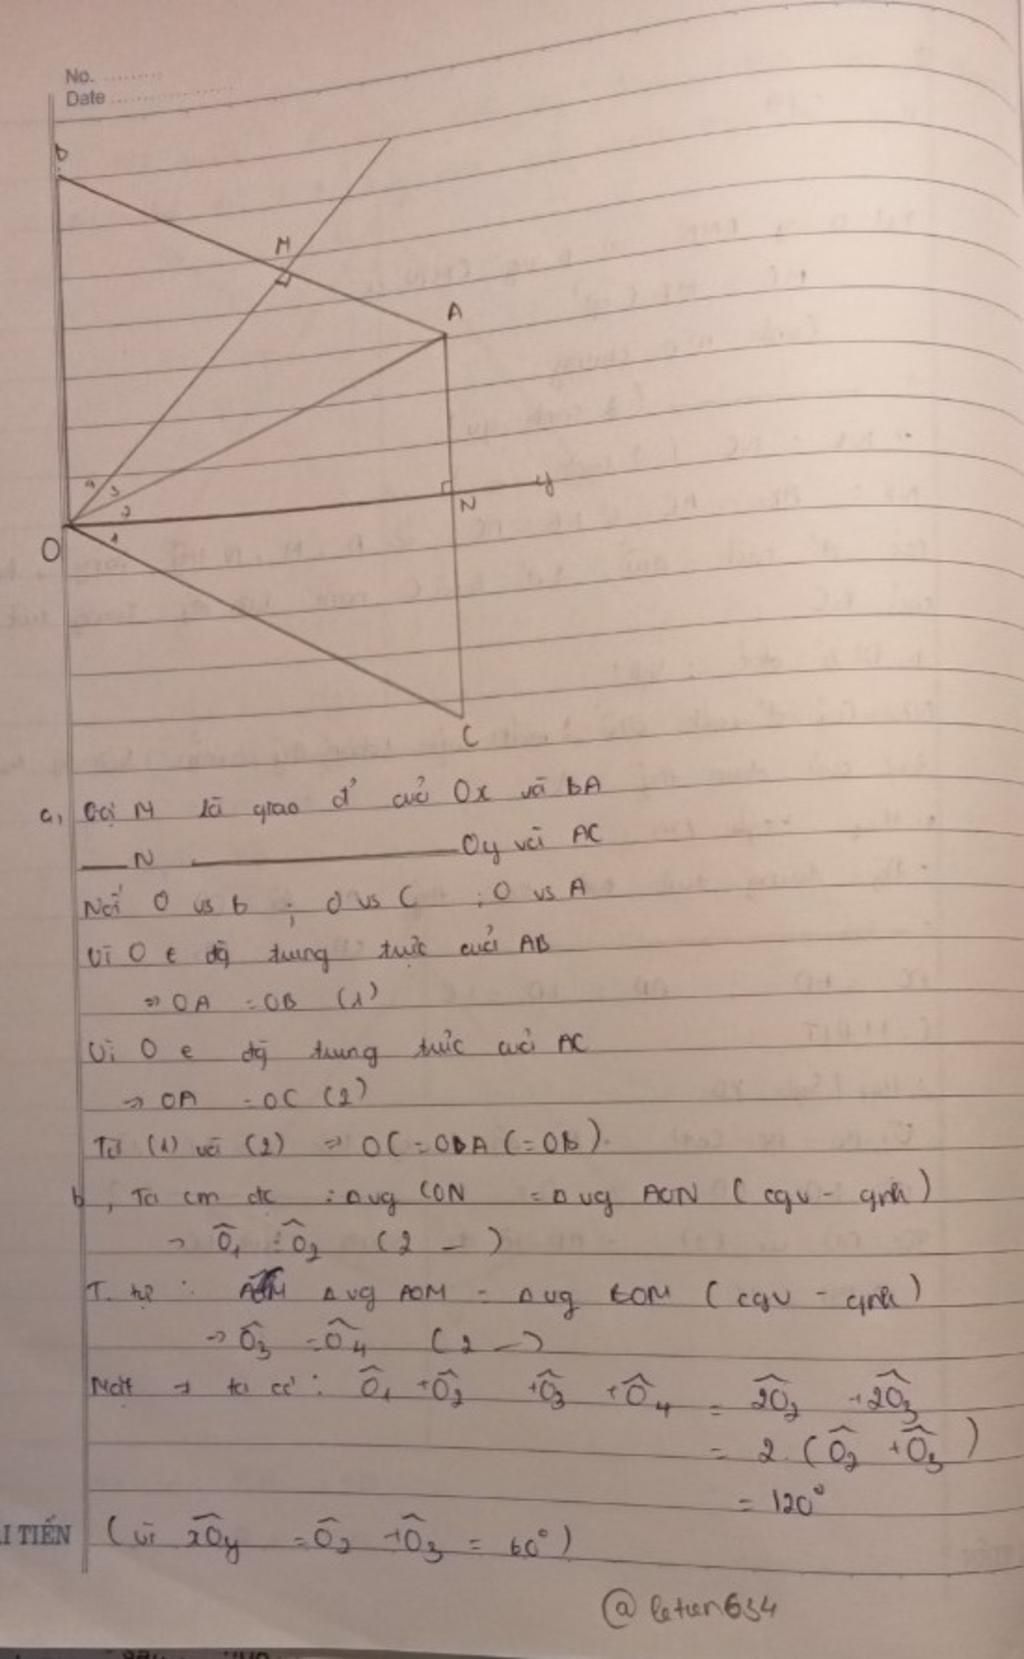 No. ..........
Date ..................
B
M
A
4 3
2
y
N
O
1
C
a, Gọi M là giao đ' của Ox và BA
__ N ____________ Oy với AC
Nối O vs b ; O vs C ; O vs A
Vì O є đg trung trực của AB
⇒ OA = OB (1)
Vì O є đg trung trực của AC
→ OA = OC (2)
Từ (1) và (2) ⇒ OC = OBA (= OB).
b, Ta cm đc : Δ vg CON = Δ vg AON ( cgv - gnk )
→ Ô1 = Ô2 ( 2 _ )
T. tự : Δ vg AOM = Δ vg BOM ( cgv - gnk )
→ Ô3 = Ô4 ( 2 _ )
Mặt ≠ ta có : Ô1 + Ô2 + Ô3 + Ô4 = 2Ô2 + 2Ô3
= 2. ( Ô2 + Ô3 )
= 120°
I TIẾN
( Vì xÔy = Ô2 + Ô3 = 60° )
@ letien634